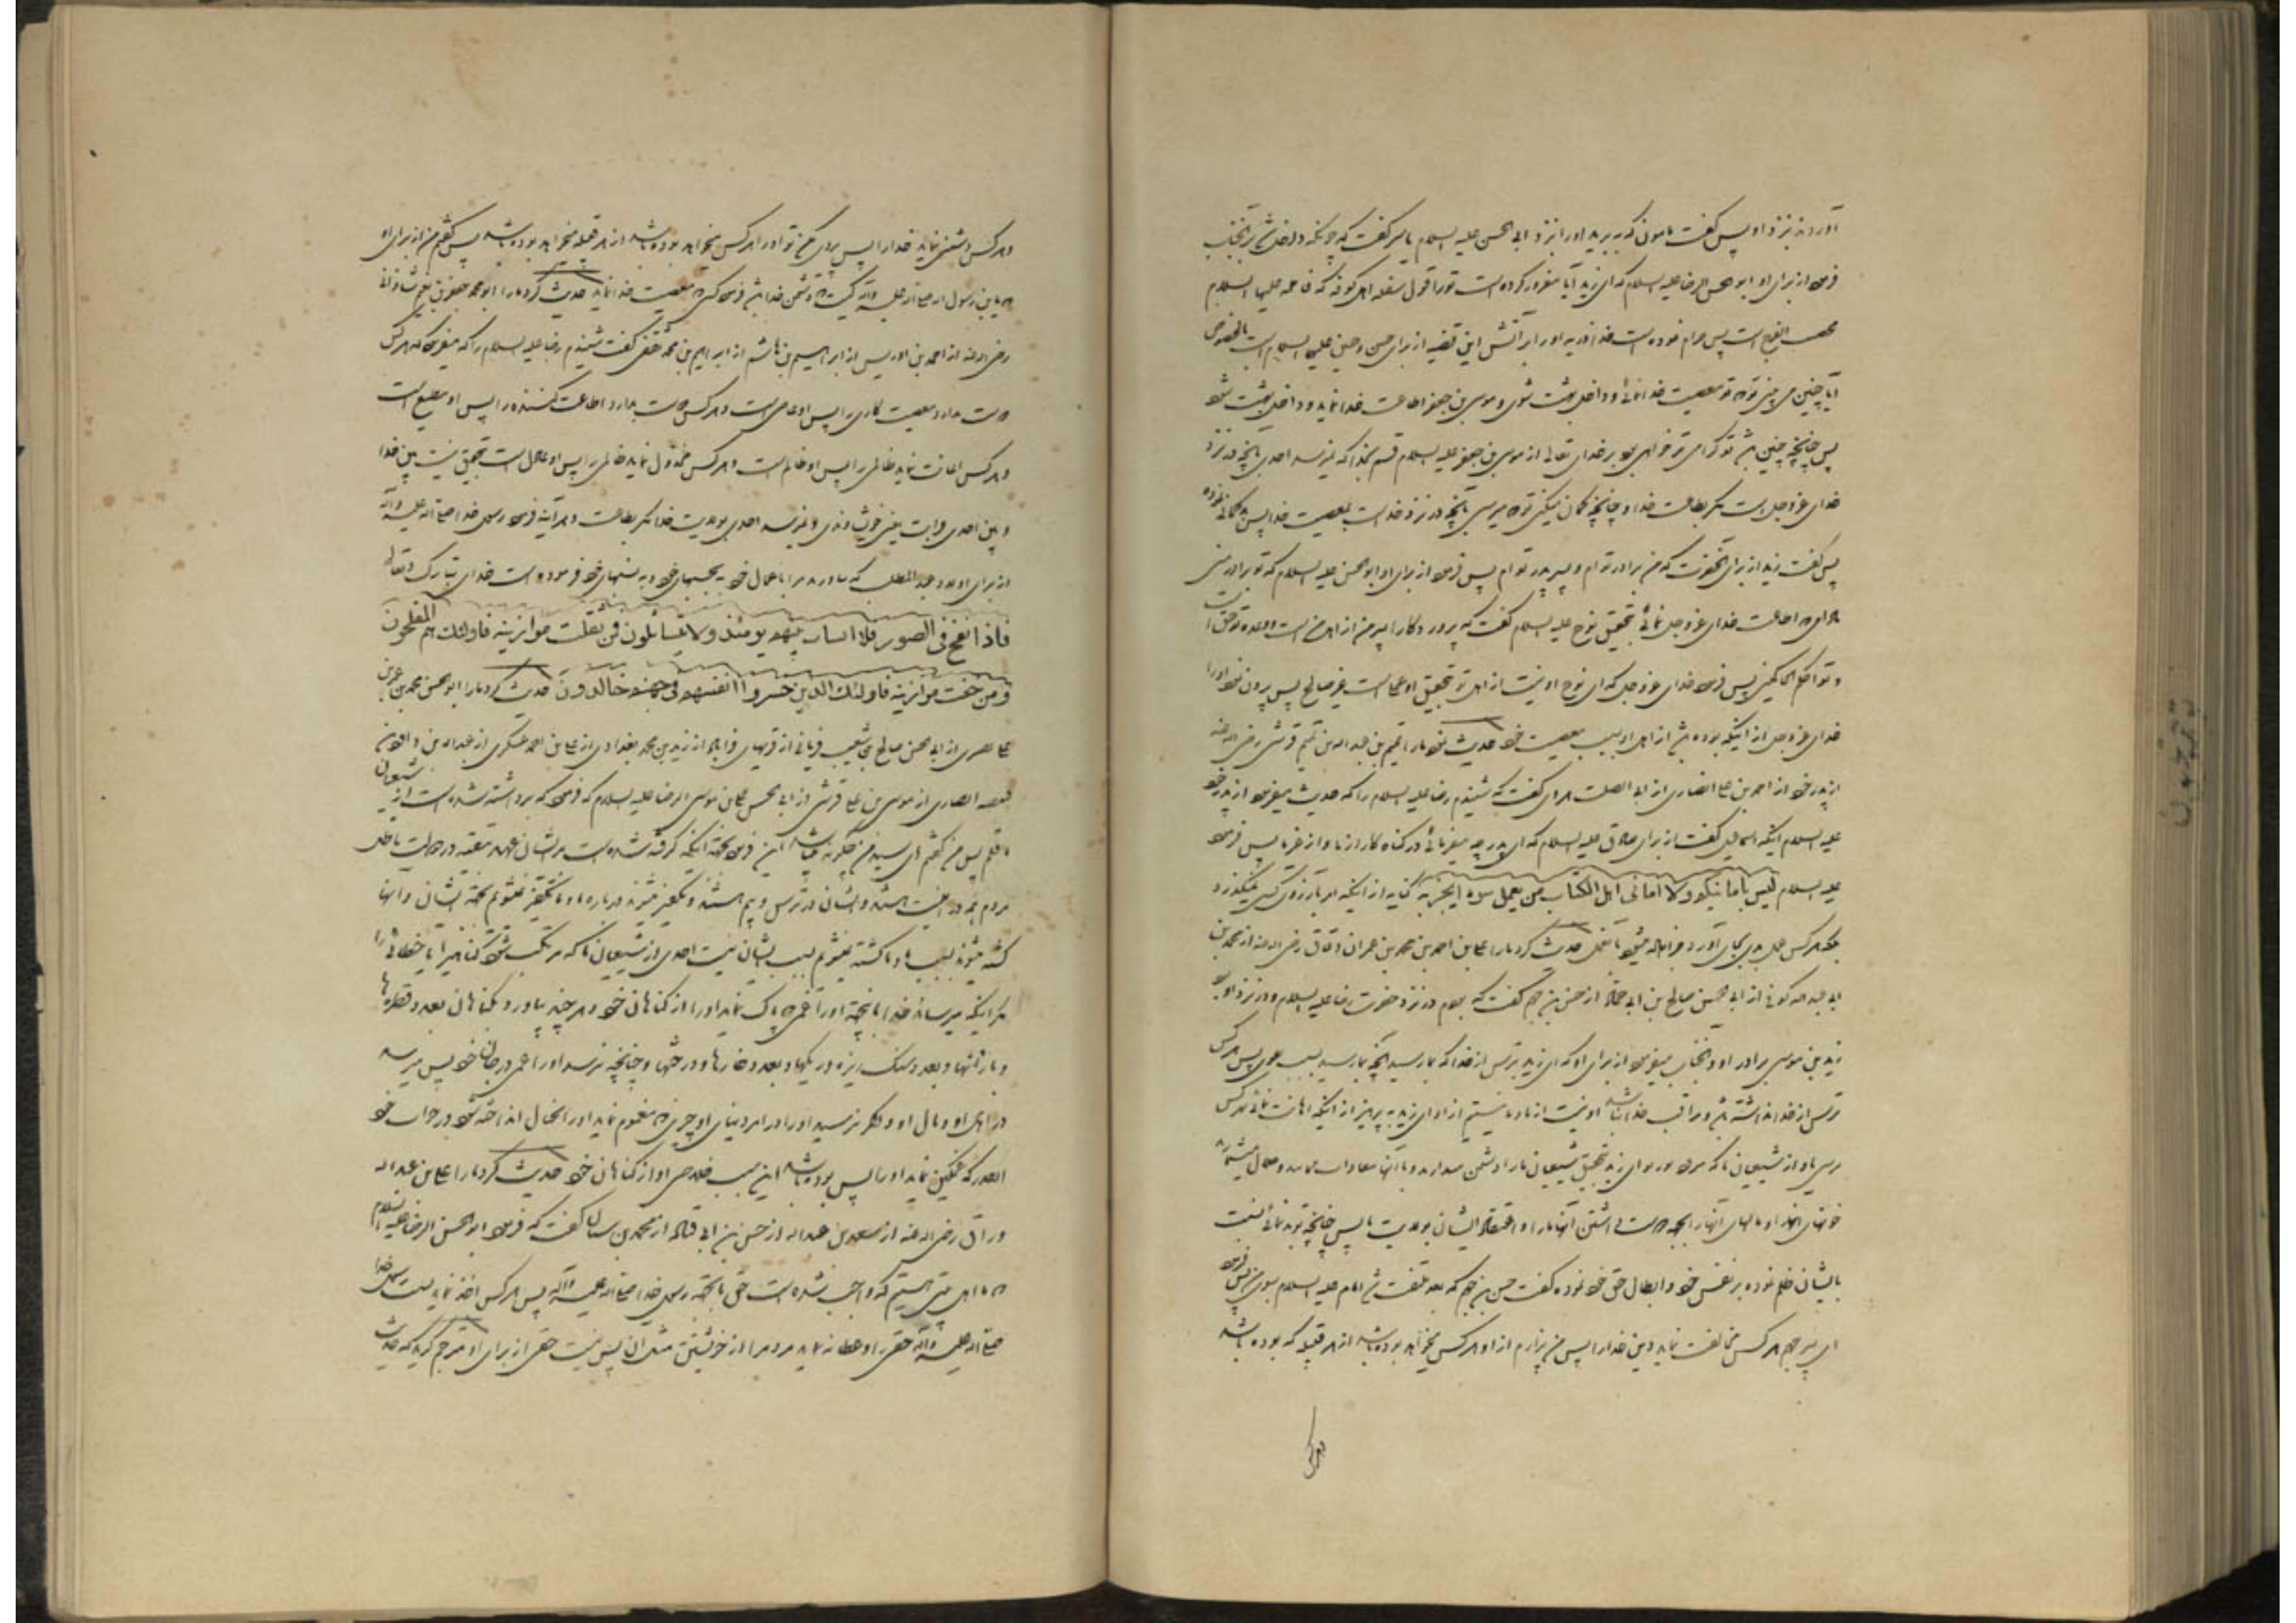 آوردند نزد او پس گفت مامون که ببرید او را نزد ابی الحسن علیه السلام یاسر گفت که چونکه داخل شد بر آنجناب
فرمود از برای او ابو الحسن الرضا علیه السلام که ای زید آیا مغرور کرده است تو را قول سفله اهل کوفه که فاطمه علیها السلام
پس حرام نموده است خدا ذریه او را بر آتش این قضیه از برای حسن و حسین علیهما السلام است بالخصوص
آیا چنین می بینی تو که تو معصیت خدا نمائی و داخل بهشت شوی و موسی بن جعفر اطاعت خدا نماید و داخل بهشت شود
پس چنانچه چنین باشد تو گرامی تر خواهی بود بر خدای تعالی از موسی بن جعفر علیه السلام قسم بخدا که نمیرسد احدی بآنچه در نزد
خدای عزوجل است مگر بطاعت خدا و چنانچه گمان میکنی تو که میرسی بآنچه در نزد خداست بمعصیت خدا پس بد گمانی نموده
پس گفت زید از برای آنحضرت که من برادر تو ام و پسر پدر تو ام پس فرمود از برای او ابو الحسن علیه السلام که تو برادر منی
مادامی که اطاعت خدای عزوجل نمائی بتحقیق نوح علیه السلام گفت که پروردگارا پسر من از اهل من است و وعده تو حق است
و تو احکم الحاکمین پس فرمود خدای عزوجل که ای نوح او نیست از اهل تو بتحقیق او عملی است غیر صالح پس بیرون نمود او را
خدای عزوجل از اینکه بوده باشد از اهل او بسبب معصیت خود حدیث نمود ما را تمیم بن عبدالله بن تمیم قرشی رضی الله عنه
از پدر خود از احمد بن علی انصاری از ابی الصلت هروی گفت که شنیدم رضا علیه السلام را که حدیث میفرمود از پدر خود
علیه السلام اینکه اسماعیل گفت از برای صادق علیه السلام که ای پدر چه میفرمائی در گناه کار از ما و از غیر ما پس فرمود
علیه السلام لیس بامانیکم ولا امانی اهل الکتاب من یعمل سوء ایجز به کنایه از اینکه امر بآرزوی کسی نمیگذرد
بلکه هر کس عمل بدی بجای آورد جزا داده میشود بآنعمل حدیث کرد ما را علی بن احمد بن محمد بن عمران دقاق رضی الله عنه از محمد بن
ابی عبدالله کوفی از ابی الحسن صالح بن ابی حماد از حسن بن جهم گفت که بودم در نزد حضرت رضا علیه السلام و در نزد او بود
زید بن موسی برادر او و آنجناب میفرمود از برای او که ای زید بترس از خدا که بما رسیده آنچه بما رسیده بسبب تقوی پس هر کس
ترس از خدا نداشته باشد و مراقب خدا نباشد او نیست از ما و ما نیستیم از او ای زید بپرهیز از اینکه اهانت نمائی هر کس
برسی باو از شیعیان ما که میرود نور تو ای زید بتحقیق شیعیان ما را دشمن میدارند و با آنها معادات مینمایند و حلال میشمارند
خونهای آنها و مالهای آنها را بجهة دوست داشتن آنها ما را و اعتقاد ایشان بولایت ما پس چنانچه تو بد نمائی نسبت
بایشان ظلم نموده بر نفس خود و ابطال حق خود نموده گفت حسن بن جهم که بعد ملتفت شد امام علیه السلام بسوی من پس فرمود
ای پسر جهم هر کس مخالفت نماید دین خدا را پس من بیزارم از او هر کس میخواهد بوده باشد از هر قبیله که بوده باشد
و هر کس
و هر کس دشمنی نماید خدا را پس دوستی مکن تو او را هر کس میخواهد بوده باشد از هر قبیله میخواهد بوده باشد پس گفتم من از برای او
که یا بن رسول الله صلی الله علیه وآله کیست که دشمن خدا باشد فرمود کسی که معصیت خدا نماید حدیث کرد ما را ابو محمد جعفر بن نعیم شاذانی
رضی الله عنه از احمد بن ادریس از ابراهیم بن هاشم از ابراهیم بن محمد ثقفی گفت شنیدم رضا علیه السلام را که میفرمود که هر کس
دوست بدارد معصیت کاری را پس او عاصی است و هر کس دوست بدارد اطاعت کننده را پس او مطیع است
و هر کس اعانت نماید ظالمی را پس او ظالم است و هر کس مخذول نماید ظالمی را پس او عادل است بتحقیق نیست بین خدا
و بین احدی قرابت یعنی خویشاوندی و نمیرسد احدی بولایت خدا مگر بطاعت و هر آینه فرمود رسول خدا صلی الله علیه وآله
از برای اولاد عبد المطلب که بیاورید مرا باعمال خود نه بحسبهای خود و نه بنسبهای خود فرموده است خدای تبارک و تعالی
فاذا نفخ فی الصور فلا انساب بینهم یومئذ ولا یتسائلون فمن ثقلت موازینه فاولئک هم المفلحون
ومن خفت موازینه فاولئک الذین خسروا انفسهم فی جهنم خالدون حدیث کرد ما را ابو الحسن محمد بن عمرو بن
علی بصری از ابی الحسن صالح بن شعیب از زید بن محمد بغدادی از علی بن احمد عسکری از عبدالله بن داود بن
قبیصه انصاری از موسی بن علی قرشی از ابی الحسن علی بن موسی الرضا علیه السلام که فرمود که برداشته شده است از شیعیان
ما قلم پس من گفتم ای سید من چگونه میباشد این فرمود بجهة آنکه گرفته شده است بر ایشان عهد بتقیه در دولت باطل
مردم همه در امنیت هستند و ایشان در ترس و بیم هستند و تکفیر میشوند درباره ما و ما تکفیر نمیشویم بجهة ایشان و آنها
کشته میشوند بسبب ما و ما کشته نمیشویم بسبب ایشان نیست احدی از شیعیان ما که مرتکب شود گناهی را یا خطائی را
مگر اینکه میرساند خدا باینجهة او را غمی که پاک نماید او را از گناهان خود و هر چند بیاورد گناهان بعدد قطره‌ها
و بارانها و بعدد سنگ ریزه و ریگها و بعدد خارها و درختها و چنانچه نرسد او را غمی در جان خود پس میرسد
در اهل او و مال او و اگر نرسید او را در امر دنیای او چیزی که مغموم نماید او را بخیال انداخته شود در خواب خود
آنقدر که غمگین نماید او را پس بوده باشد این سبب خلاصی او از گناهان خود حدیث کرد ما را علی بن عبدالله
وراق رضی الله عنه از سعد بن عبدالله از حسن بن ابی قتاده از محمد بن سنان گفت که فرمود ابو الحسن الرضا علیه السلام
که ما اهل بیتی هستیم که واجب شده است حق ما بجهة رسول خدا صلی الله علیه وآله پس هر کس اخذ نماید بسبب رسول خدا
صلی الله علیه وآله حقی را و عطا ننماید مردم را از خویشتن مثل آن پس نیست حقی از برای او مترجم گوید که حدیث